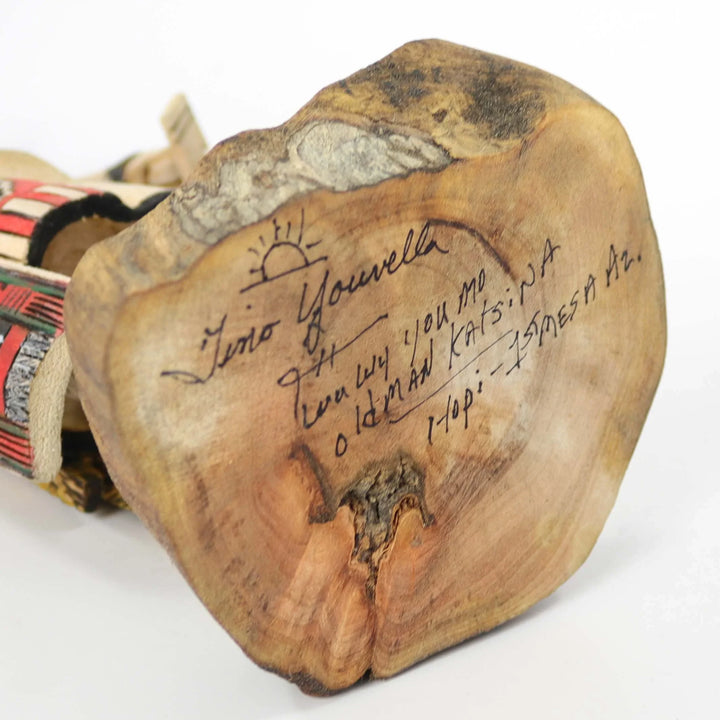 Tino Youvella
WuWuYOUMO
OldMAN KAtsiNA
Hopi-1st MESA Az.